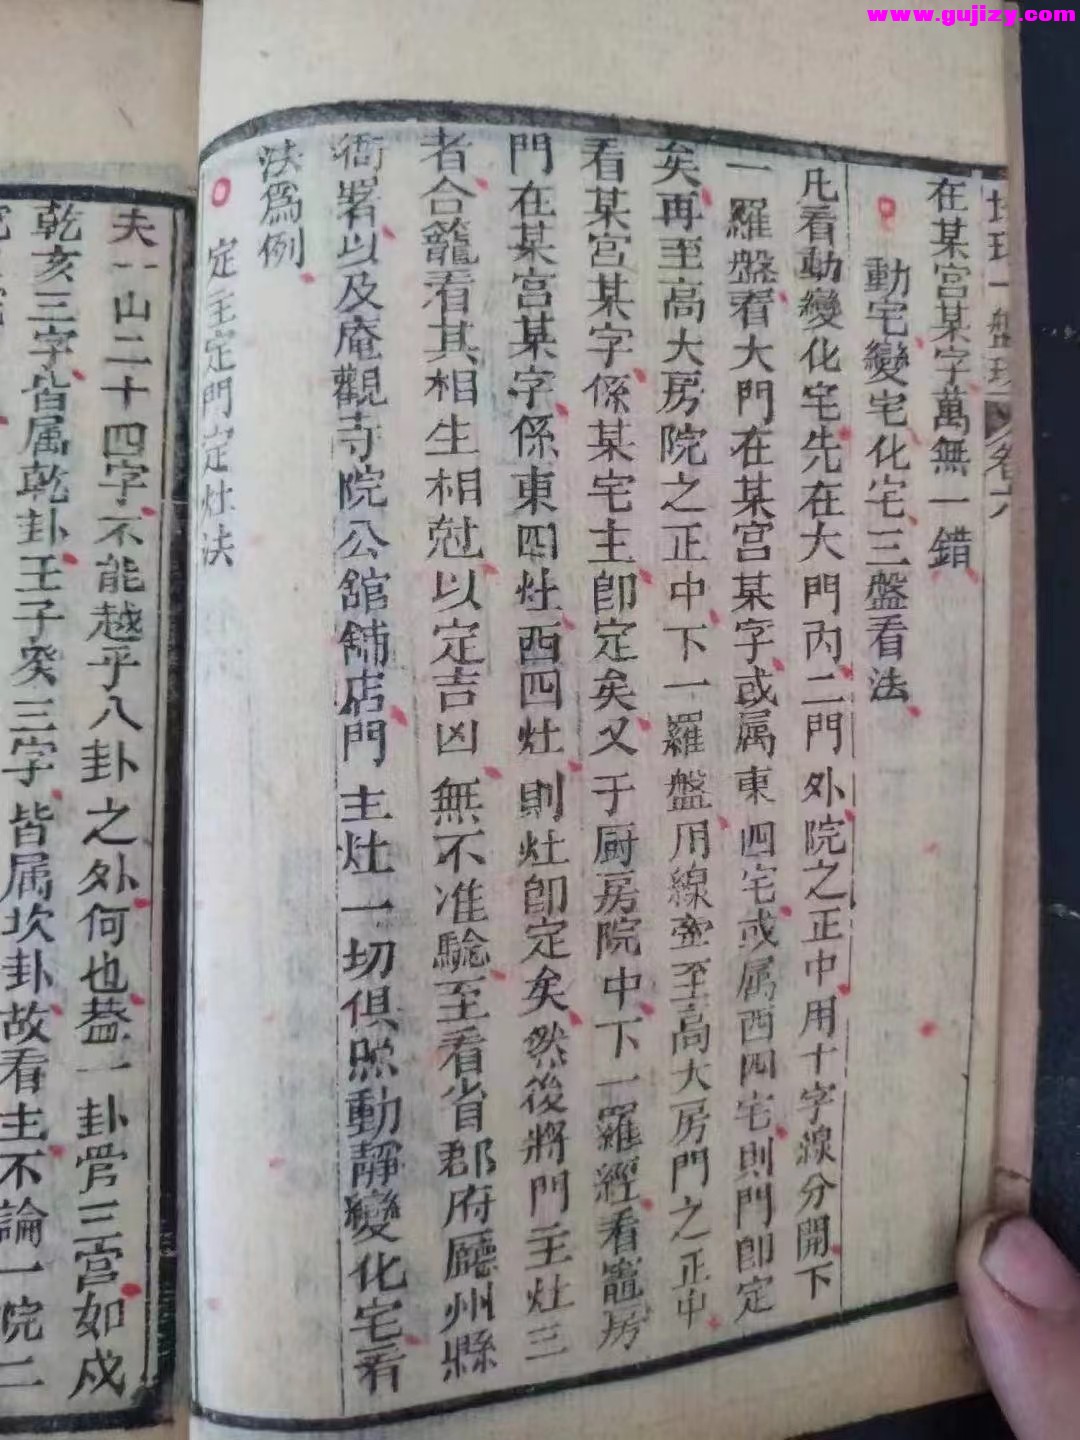 www.gujizy.com
卷六
在某宮某字萬無一錯
動宅變宅化宅三盤看法
凡看動變化宅先在大門內二門外院之正中用十字線分開下
一羅盤看大門在某宮某字或属東四宅或属西四宅則門卽定
矣再至高大房院之正中下一羅盤用線牽至高大房門之正中
看某宮某字係某宅主卽定矣又于厨房院中下一羅經看竈房
門在某宮某字係東四灶西四灶則灶卽定矣然後將門主灶三
者合籠看其相生相尅以定吉凶無不准驗至看省郡府廳州縣
衙署以及庵觀寺院公舘舖店門主灶一切俱照動靜變化宅看
法為例
定主定門定灶法
夫一山二十四字不能越乎八卦之外何也葢一卦管三宮如戍
乾亥三字皆属乾卦壬子癸三字皆属坎卦故看主不論一院二